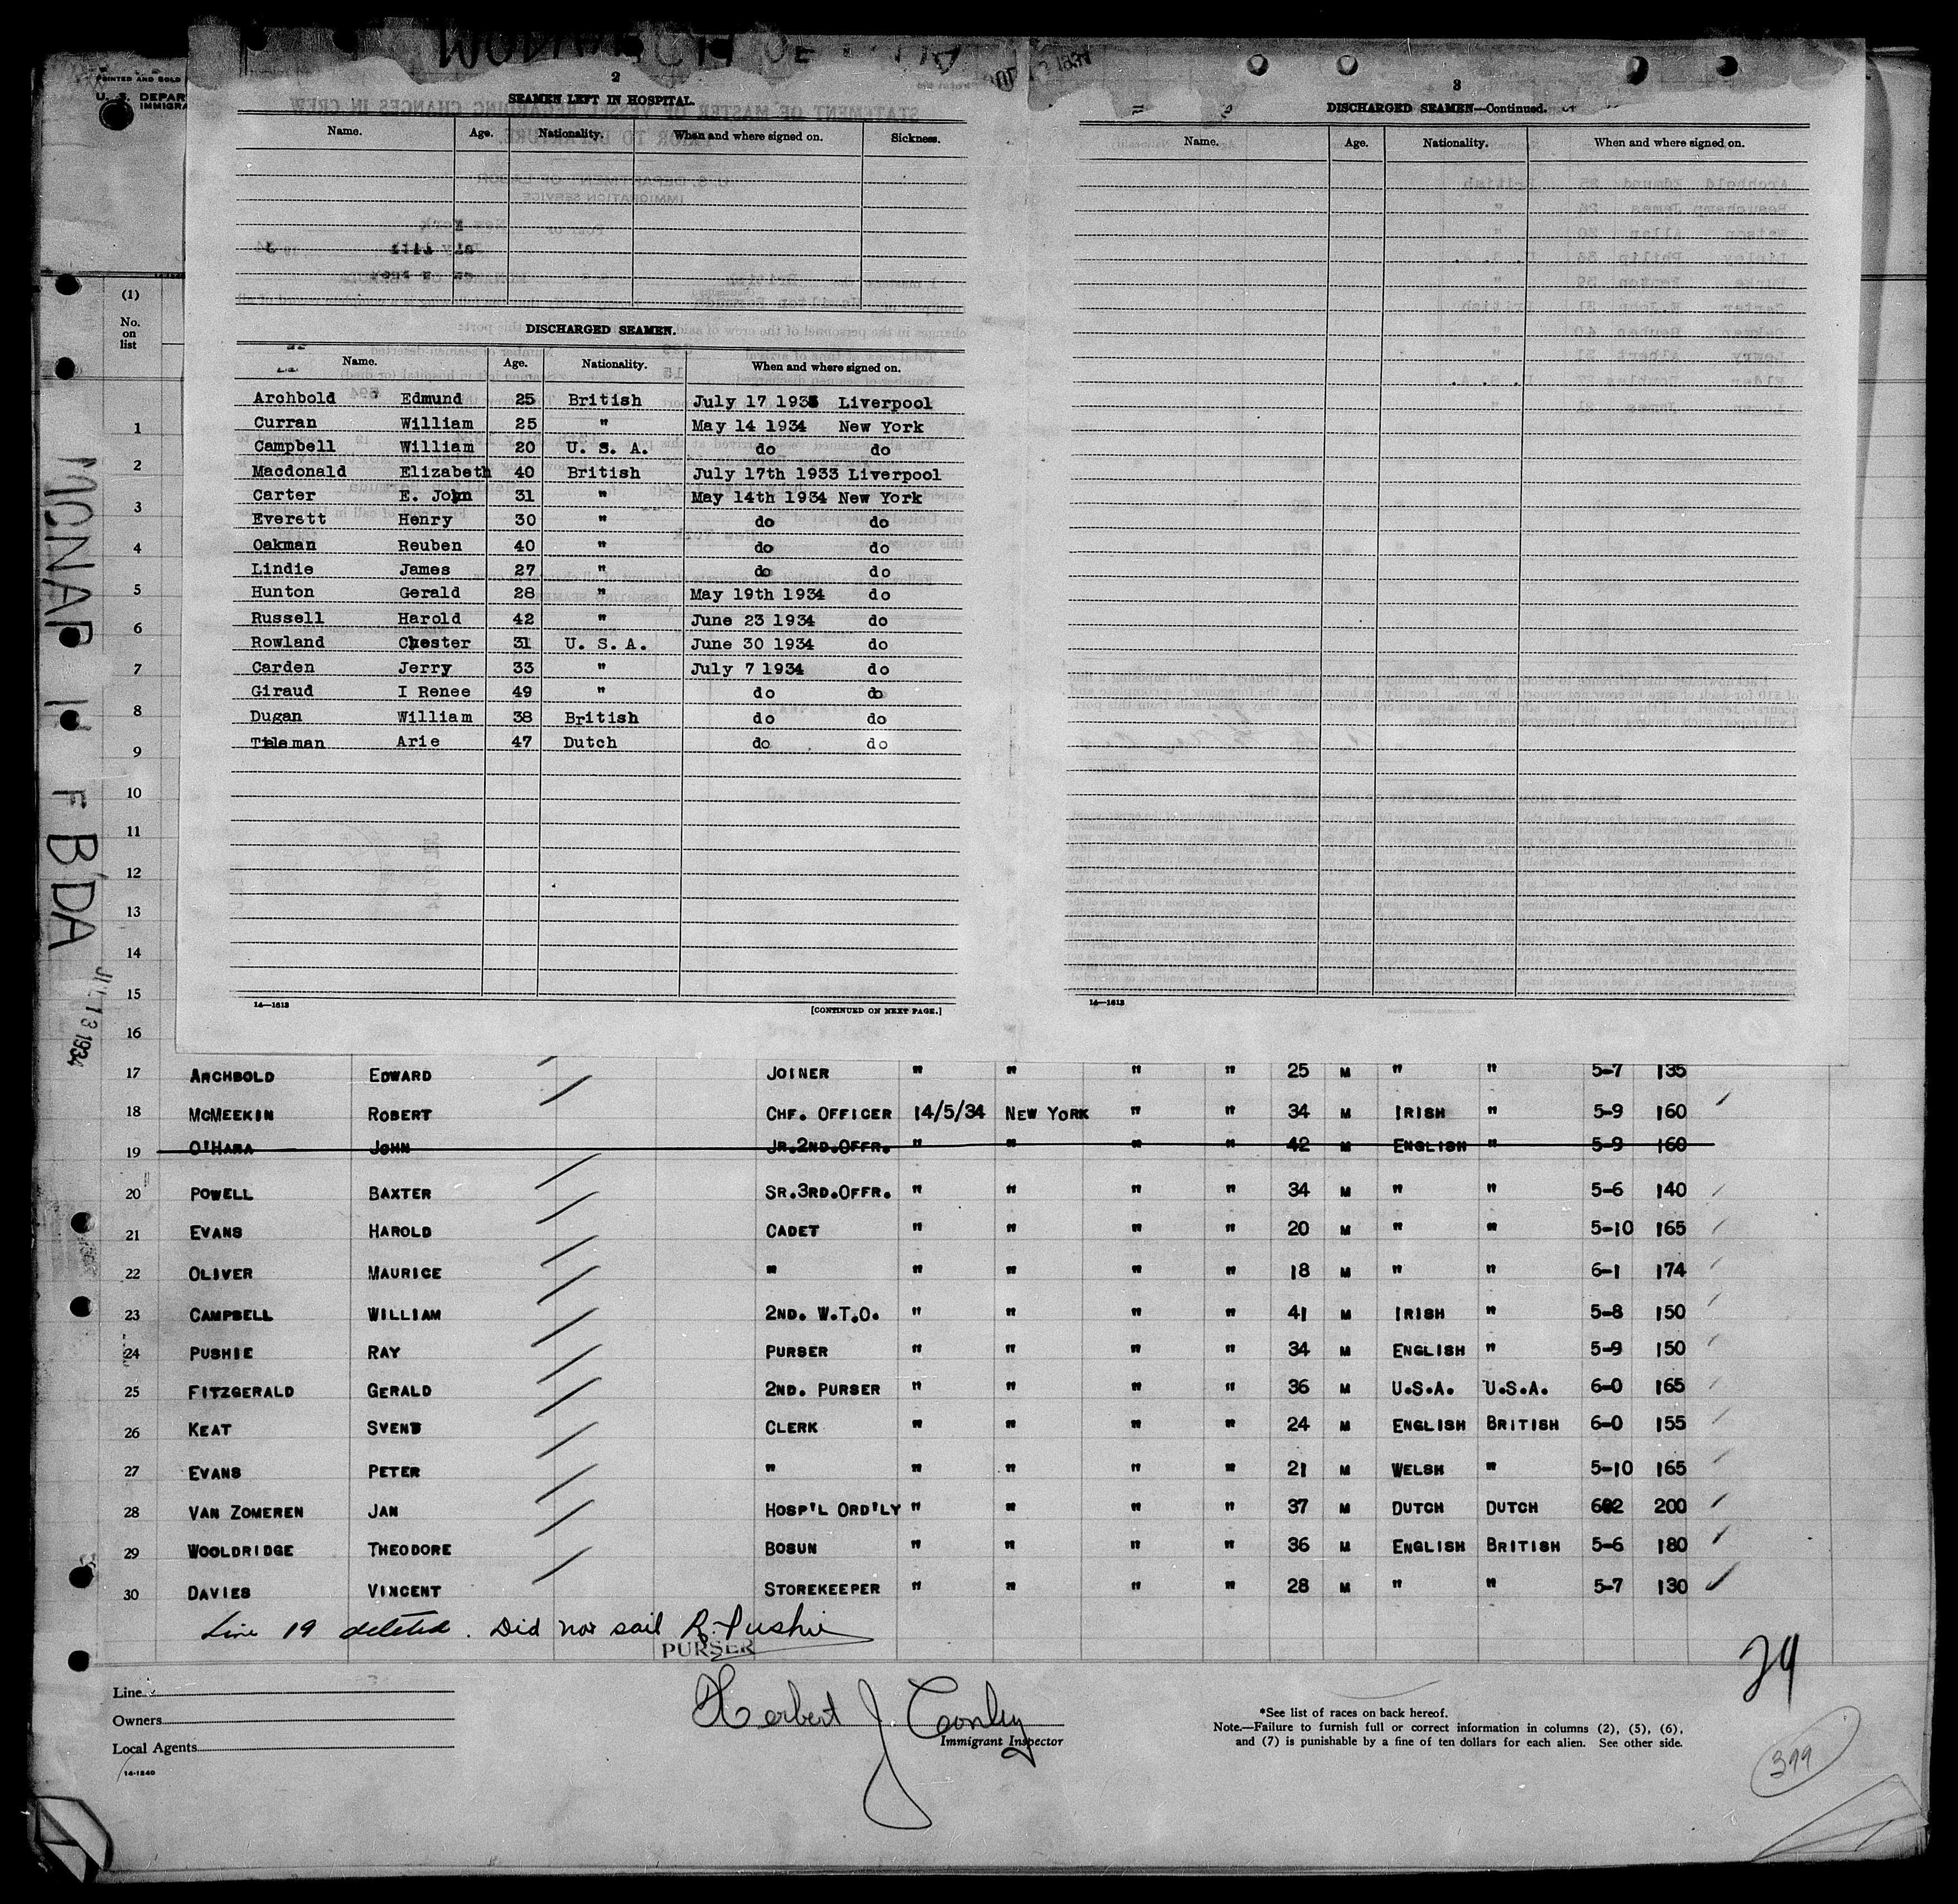 PRINTED AND SOLD
U. S. DEPAR
IMMIGRA
2
SEAMEN LEFT IN HOSPITAL.
Name. Age. Nationality. When and where signed on. Sickness.
DISCHARGED SEAMEN.
Name. Age. Nationality. When and where signed on.
Archbold Edmund 25 British July 17 1933 Liverpool
Curran William 25 " May 14 1934 New York
Campbell William 20 U. S. A. do do
Macdonald Elizabeth 40 British July 17th 1933 Liverpool
Carter E. John 31 " May 14th 1934 New York
Everett Henry 30 " do do
Oakman Reuben 40 " do do
Lindie James 27 " do do
Hunton Gerald 28 " May 19th 1934 do
Russell Harold 42 " June 23 1934 do
Rowland Chester 31 U. S. A. June 30 1934 do
Carden Jerry 33 " July 7 1934 do
Giraud I Renee 49 " do do
Dugan William 38 British do do
Tileman Arie 47 Dutch do do
14—1613
[CONTINUED ON NEXT PAGE.]
3
DISCHARGED SEAMEN—Continued.
Name. Age. Nationality. When and where signed on.
14—1613
(1)
No.
on
list
1
2
3
4
5
6
7
8
9
10
11
12
13
14
15
16
MONAR H F B'DA
JUL 13 1934
17 ARCHBOLD EDWARD JOINER " " " " 25 M " " 5-7 135
18 MCMEEKIN ROBERT CHF. OFFICER 14/5/34 NEW YORK " " 34 M IRISH " 5-9 160
19 O'HARA JOHN JR.2ND.OFFR. " " " " 42 M ENGLISH " 5-9 160
20 POWELL BAXTER SR.3RD.OFFR. " " " " 34 M " " 5-6 140
21 EVANS HAROLD CADET " " " " 20 M " " 5-10 165
22 OLIVER MAURICE " " " " " 18 M " " 6-1 174
23 CAMPBELL WILLIAM 2ND. W.T.O. " " " " 41 M IRISH " 5-8 150
24 PUSHIE RAY PURSER " " " " 34 M ENGLISH " 5-9 150
25 FITZGERALD GERALD 2ND. PURSER " " " " 36 M U.S.A. U.S.A. 6-0 165
26 KEAT SVEND CLERK " " " " 24 M ENGLISH BRITISH 6-0 155
27 EVANS PETER " " " " " 21 M WELSH " 5-10 165
28 VAN ZOMEREN JAN HOSP'L ORD'LY " " " " 37 M DUTCH DUTCH 6-2 200
29 WOOLDRIDGE THEODORE BOSUN " " " " 36 M ENGLISH BRITISH 5-6 180
30 DAVIES VINCENT STOREKEEPER " " " " 28 M " " 5-7 130
Line 19 deleted. Did not sail R. Pushie
PURSER
Line
Owners
Local Agents
14-1240
Herbert J Conley
Immigrant Inspector
*See list of races on back hereof.
Note.—Failure to furnish full or correct information in columns (2), (5), (6),
and (7) is punishable by a fine of ten dollars for each alien. See other side.
29
399